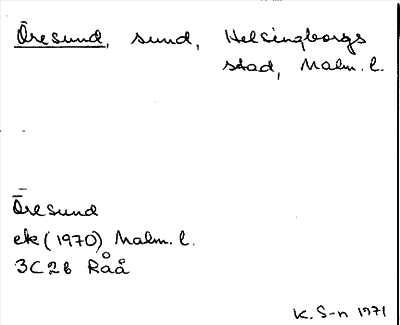 Öresund, sund, Helsingborgs
stad, Malm. l.
Öresund
ek (1970) Malm. l.
3C2b Råå
K. S-n 1971